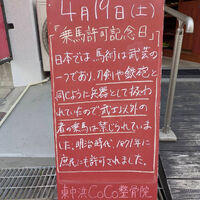 4月19日(土)
「乗馬許可記念日」
日本では、馬術は武芸の
一つであり、刀剣や鉄砲と
同じように兵器として扱わ
れていたので武士以外の
者の乗馬は禁じられていま
した。明治時代、1871年に
庶民にも許可されました。
東中浜CoCo整骨院